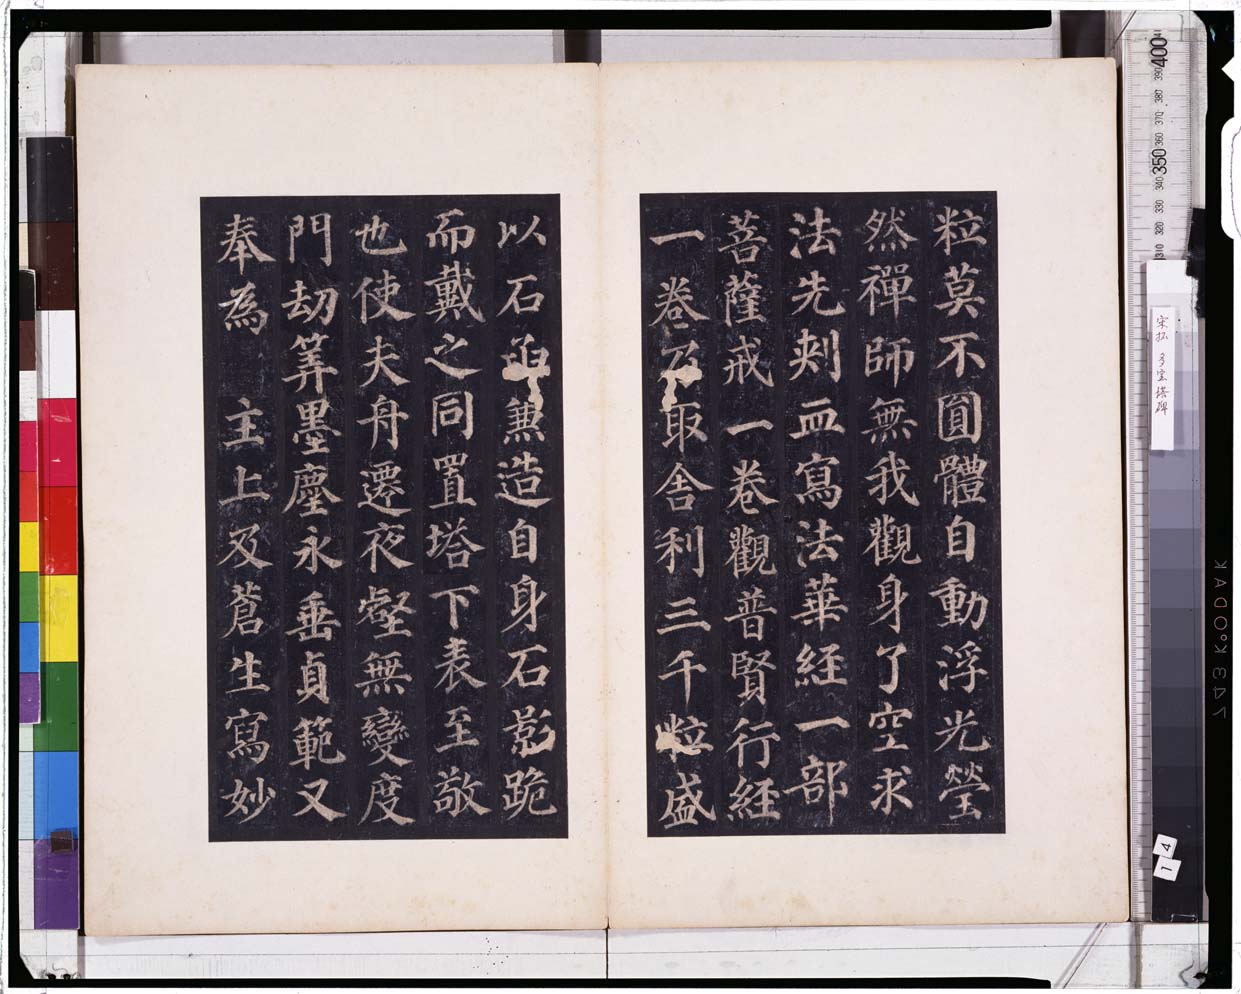 粒莫不圓體自動浮光瑩
然禪師無我觀身了空求
法先刺血寫法華経一部
菩薩戒一卷觀普賢行経
一卷乃取舎利三千粒盛
以石函兼造自身石影跪
而戴之同置塔下表至敬
也使夫舟遷夜壑無變度
門劫筭墨塵永垂貞範又
奉為 主上及蒼生寫妙
宋拓 多宝塔碑
400
390
380
370
360
350
340
330
320
310
14
743 KODAK